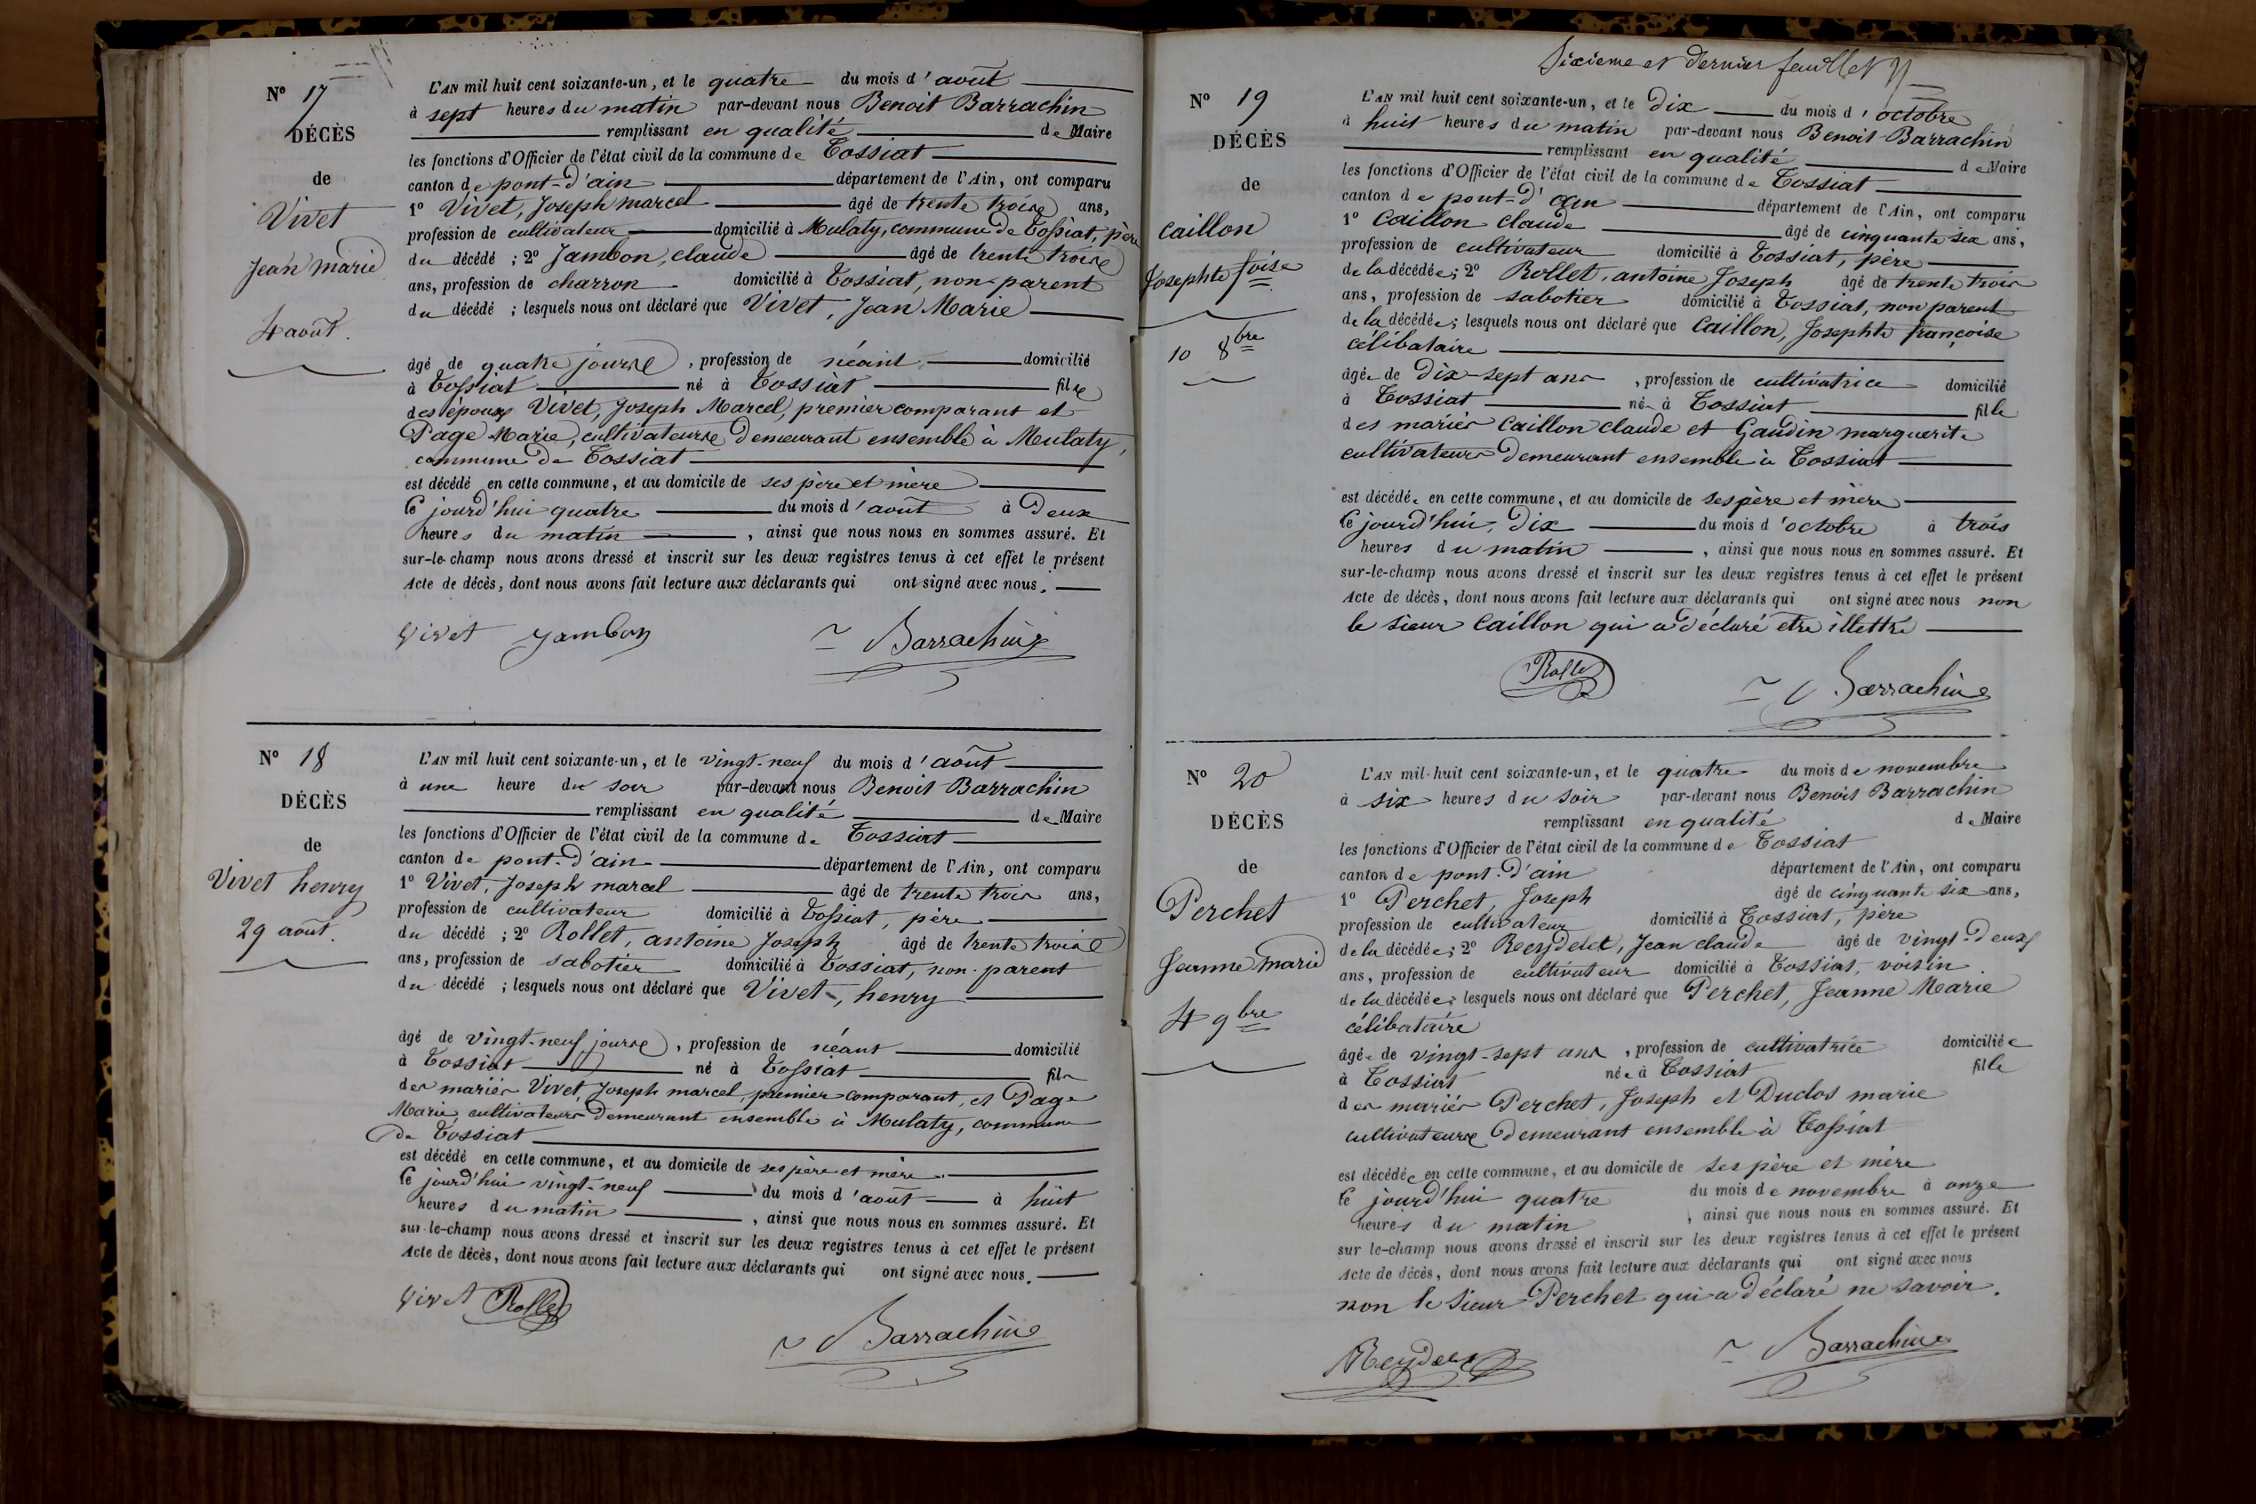 N° 17
DÉCÈS
de
Vivet
Jean marie
4 août.
L'AN mil huit cent soixante-un, et le quatre du mois d'août
à sept heures du matin par-devant nous Benoit Barrachin
remplissant en qualité de Maire
les fonctions d'Officier de l'état civil de la commune de Tossiat
canton de pont-d'ain département de l'Ain, ont comparu
1° Vivet, Joseph marcel âgé de trente trois ans,
profession de cultivateur domicilié à Mulaty, commune de Tossiat, père
du décédé ; 2° Jambon, claude âgé de trente trois
ans, profession de charron domicilié à Tossiat, non-parent
du décédé ; lesquels nous ont déclaré que Vivet, Jean Marie
âgé de quatre jours, profession de néant domicilié
à Tossiat né à Tossiat fils
des époux Vivet, Joseph Marcel, premier comparant et
Page Marie, cultivateurs demeurant ensemble à Mulaty,
commune de Tossiat
est décédé en cette commune, et au domicile de ses père et mère
Ce jourd'hui quatre du mois d'août à Deux
heures du matin, ainsi que nous nous en sommes assuré. Et
sur-le-champ nous avons dressé et inscrit sur les deux registres tenus à cet effet le présent
Acte de décès, dont nous avons fait lecture aux déclarants qui ont signé avec nous.
Vivet Jambon Barrachin
N° 18
DÉCÈS
de
Vivet henry
29 août.
L'AN mil huit cent soixante-un, et le vingt-neuf du mois d'août
à une heure du soir par-devant nous Benoit Barrachin
remplissant en qualité de Maire
les fonctions d'Officier de l'état civil de la commune de Tossiat
canton de pont-d'ain département de l'Ain, ont comparu
1° Vivet, Joseph marcel âgé de trente trois ans,
profession de cultivateur domicilié à Tossiat, père
du décédé ; 2° Rollet, antoine Joseph âgé de trente trois
ans, profession de sabotier domicilié à Tossiat, non-parent
du décédé ; lesquels nous ont déclaré que Vivet, henry
âgé de vingt-neuf jours, profession de néant domicilié
à Tossiat né à Tossiat fils
des mariés Vivet, Joseph marcel, premier comparant, et Page
Marie cultivateurs demeurant ensemble à Mulaty, commune
de Tossiat
est décédé en cette commune, et au domicile de ses père et mère.
Ce jourd'hui vingt-neuf du mois d'août à huit
heures du matin, ainsi que nous nous en sommes assuré. Et
sur-le-champ nous avons dressé et inscrit sur les deux registres tenus à cet effet le présent
Acte de décès, dont nous avons fait lecture aux déclarants qui ont signé avec nous.
Vivet Rollet
Barrachin
Sixième et dernier feuillet
N° 19
DÉCÈS
de
Caillon
Josephte foise
10 8bre
L'AN mil huit cent soixante-un, et le Dix du mois d'octobre
à huit heures du matin par-devant nous Benoit Barrachin
remplissant en qualité de Maire
les fonctions d'Officier de l'état civil de la commune de Tossiat
canton de pont-d'ain département de l'Ain, ont comparu
1° Caillon claude âgé de cinquante six ans,
profession de cultivateur domicilié à Tossiat, père
de la décédée; 2° Rollet, antoine Joseph âgé de trente trois
ans, profession de sabotier domicilié à Tossiat, non parent
de la décédée; lesquels nous ont déclaré que Caillon, Josephte françoise
célibataire
âgée de Dix-sept ans, profession de cultivatrice domicilié
à Tossiat née à Tossiat fille
des mariés Caillon claude et Gaudin marguerite
cultivateurs demeurant ensemble à Tossiat
est décédée en cette commune, et au domicile de ses père et mère
Ce jourd'hui, Dix du mois d'octobre à trois
heures du matin, ainsi que nous nous en sommes assuré. Et
sur-le-champ nous avons dressé et inscrit sur les deux registres tenus à cet effet le présent
Acte de décès, dont nous avons fait lecture aux déclarants qui ont signé avec nous non
le sieur Caillon qui a déclaré etre illettré
Rollet Barrachin
N° 20
DÉCÈS
de
Perchet
Jeanne marie
4 9bre
L'AN mil huit cent soixante-un, et le quatre du mois de novembre
à six heures du soir par-devant nous Benoit Barrachin
remplissant en qualité de Maire
les fonctions d'Officier de l'état civil de la commune de Tossiat
canton de pont-d'ain département de l'Ain, ont comparu
1° Perchet, Joseph âgé de cinquante six ans,
profession de cultivateur domicilié à Tossiat, père
de la décédée; 2° Reydelet, Jean claude âgé de vingt-deux
ans, profession de cultivateur domicilié à Tossiat, voisin
de la décédée; lesquels nous ont déclaré que Perchet, Jeanne Marie
célibataire
âgée de vingt-sept ans, profession de cultivatrice domiciliée
à Tossiat née à Tossiat fille
des mariés Perchet, Joseph et Duclos marie
cultivateurs demeurant ensemble à Tossiat
est décédée en cette commune, et au domicile de ses père et mère
Ce jourd'hui quatre du mois de novembre à onze
heures du matin, ainsi que nous nous en sommes assuré. Et
sur-le-champ nous avons dressé et inscrit sur les deux registres tenus à cet effet le présent
Acte de décès, dont nous avons fait lecture aux déclarants qui ont signé avec nous
non le sieur Perchet qui a déclaré ne savoir.
Reydelet Barrachin